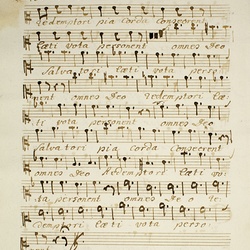 Redemptori pia corda consecrent
læti vota personent omnes Deo
Salvatori læti vota perso
nent omnes Deo Redemptori læ
ti vota personent omnes Deo
Salvatori pia corda consecrent
omnes Deo Redemptori læti vo
ta personent omnes Deo
Redemptori læti vota personent